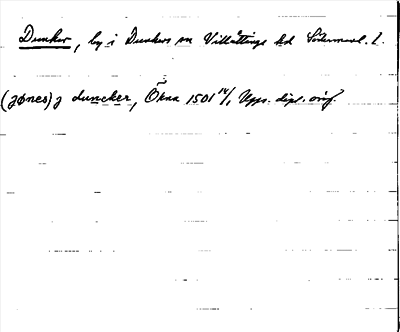 Dunker, by i Dunkers sn Villåttinge hd Södermanl. l.
(jønes) j duncker, Ökna 1501 14/1 Upps. dipl. orig.